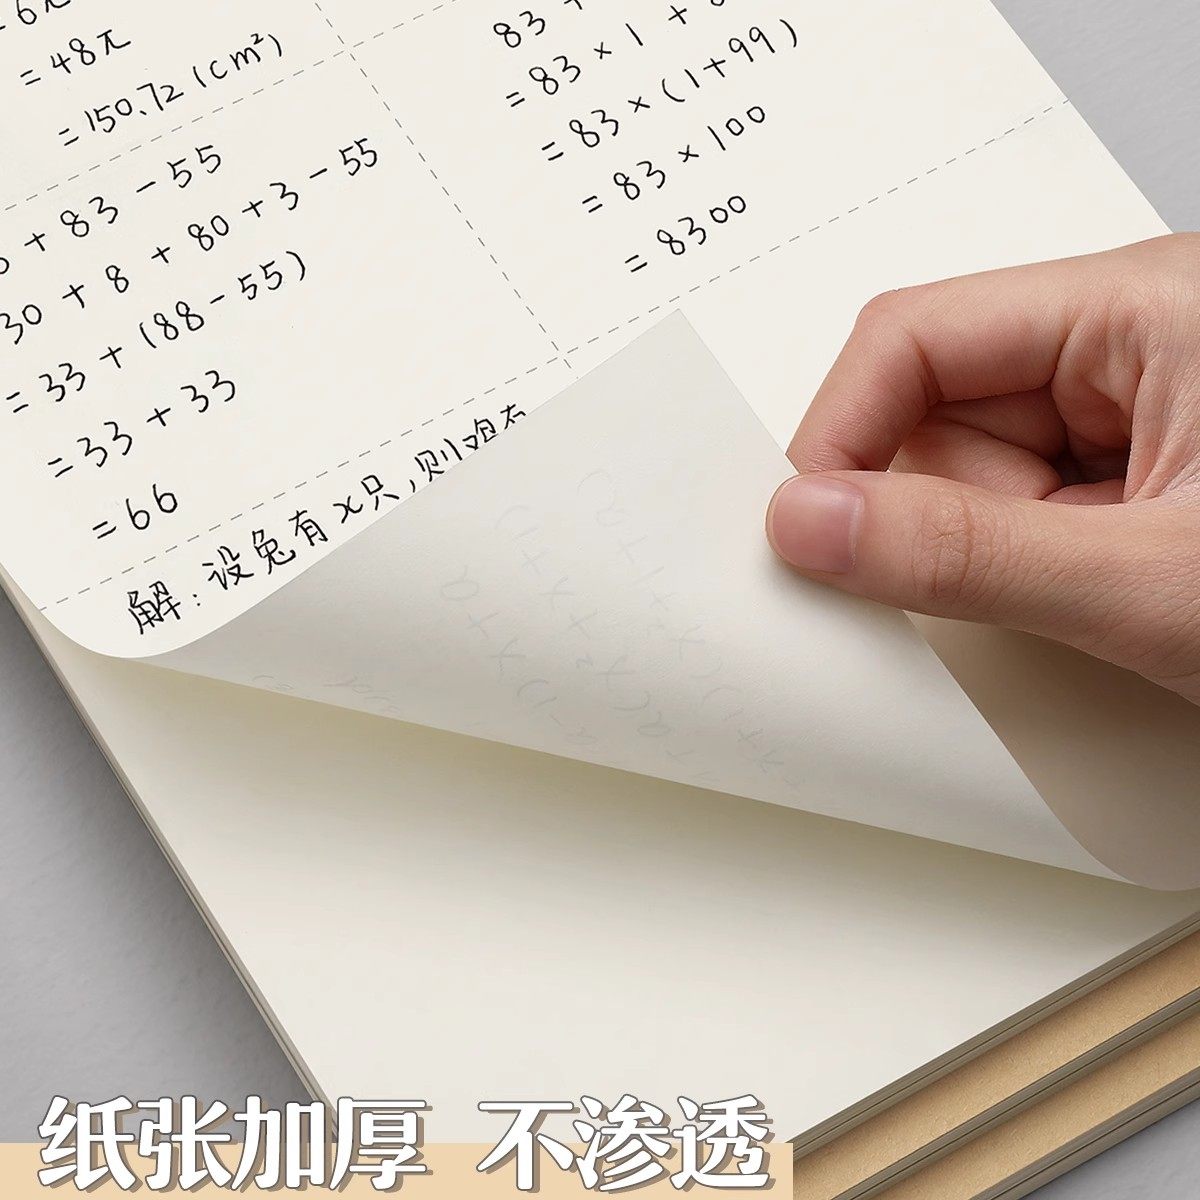 = 48π
= 150.72 (cm²)
+ 83 - 55
30 + 8 + 80 + 3 - 55
= 33 + (88 - 55)
= 33 + 33
= 66
83 +
= 83 × 1 +
= 83 × (1+99)
= 83 × 100
= 8300
解：设兔有x只，则鸡有
纸张加厚 不渗透